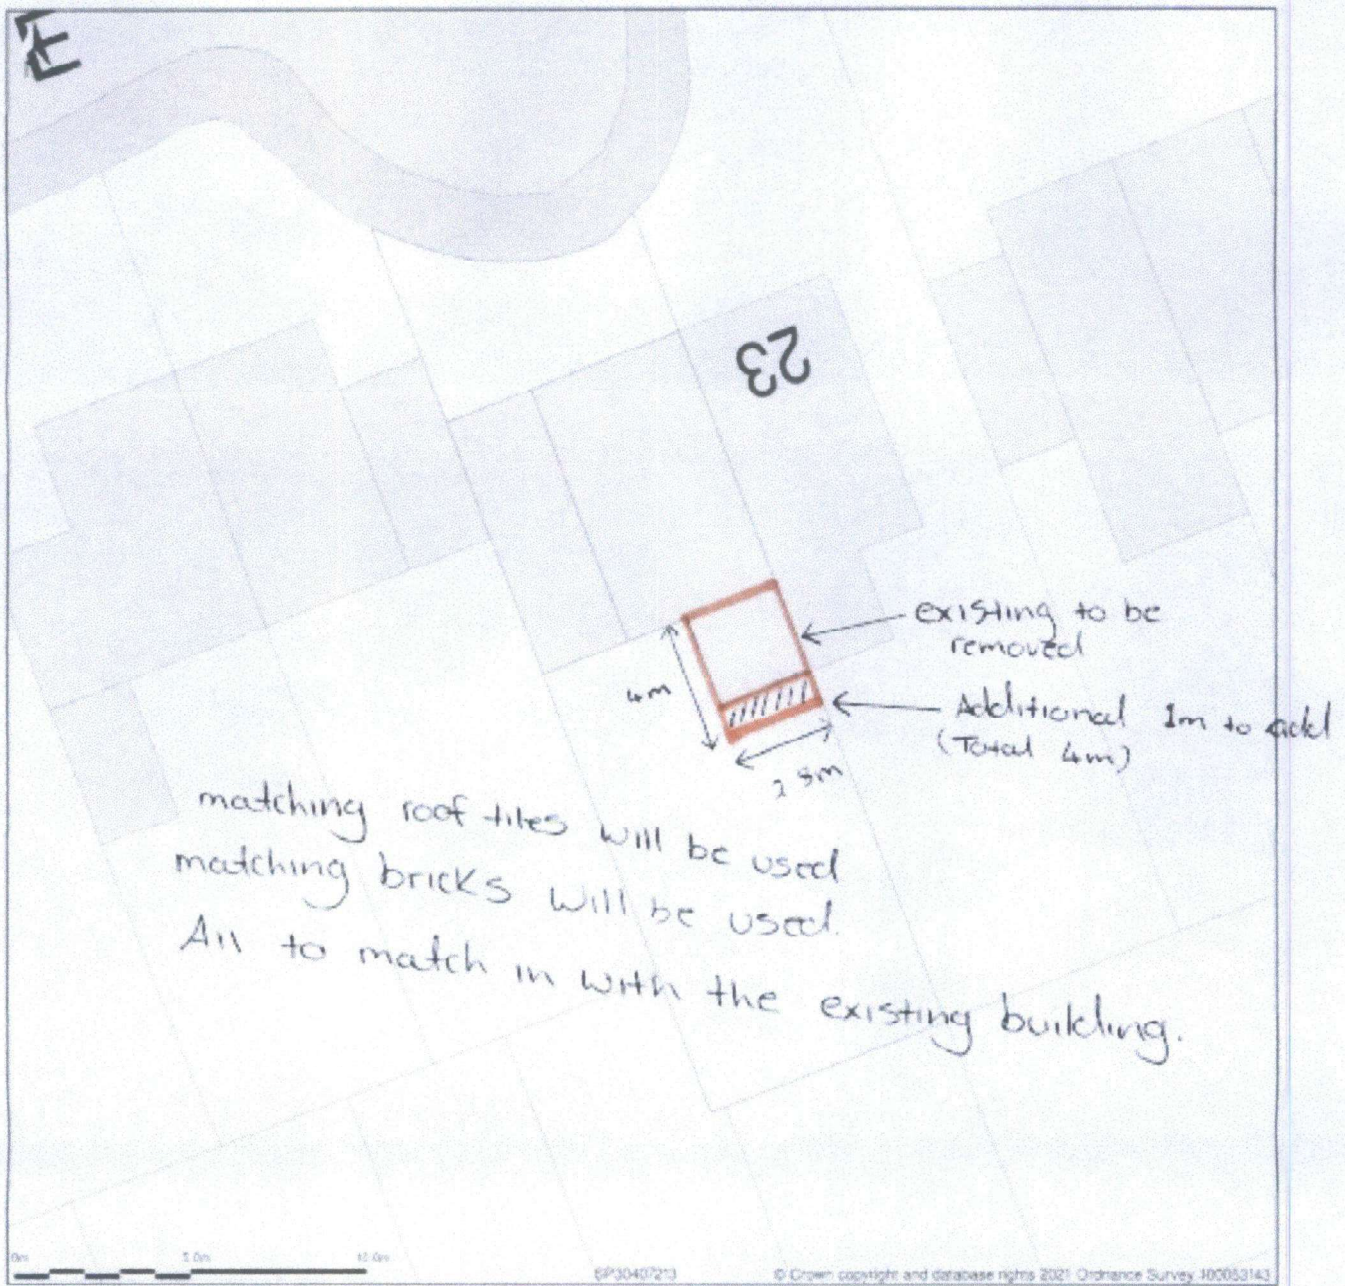 23
existing to be
removed
4m
Additional 1m to add
(Total 4m)
2.8m
matching roof tiles will be used
matching bricks will be used.
All to match in with the existing building.
0m 5.0m 10.0m
© Crown copyright and database rights 2021 Ordnance Survey